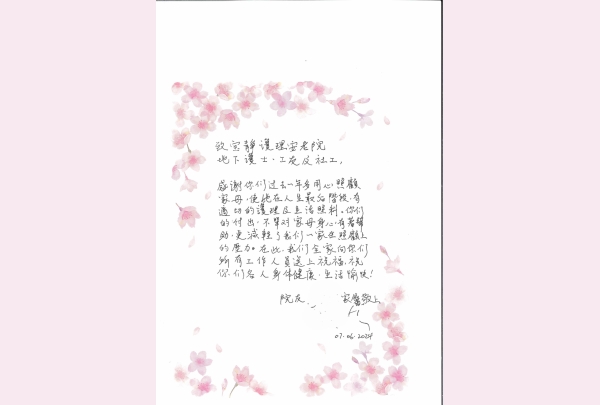 致：宝静護理安老院
地下護士、工友及社工，
感謝你们过去一年多用心照顧
家母，使她在人生最後階段，有
適切的護理及生活照料。你们
的付出，不單对家母身心有着幫
助，更減輕了我们一家在照顧上
的壓力。在此，我们全家向你们
所有工作人員送上祝福，祝
你们各人身体健康，生活愉快！
院友 家屬敬上
07.06.2024